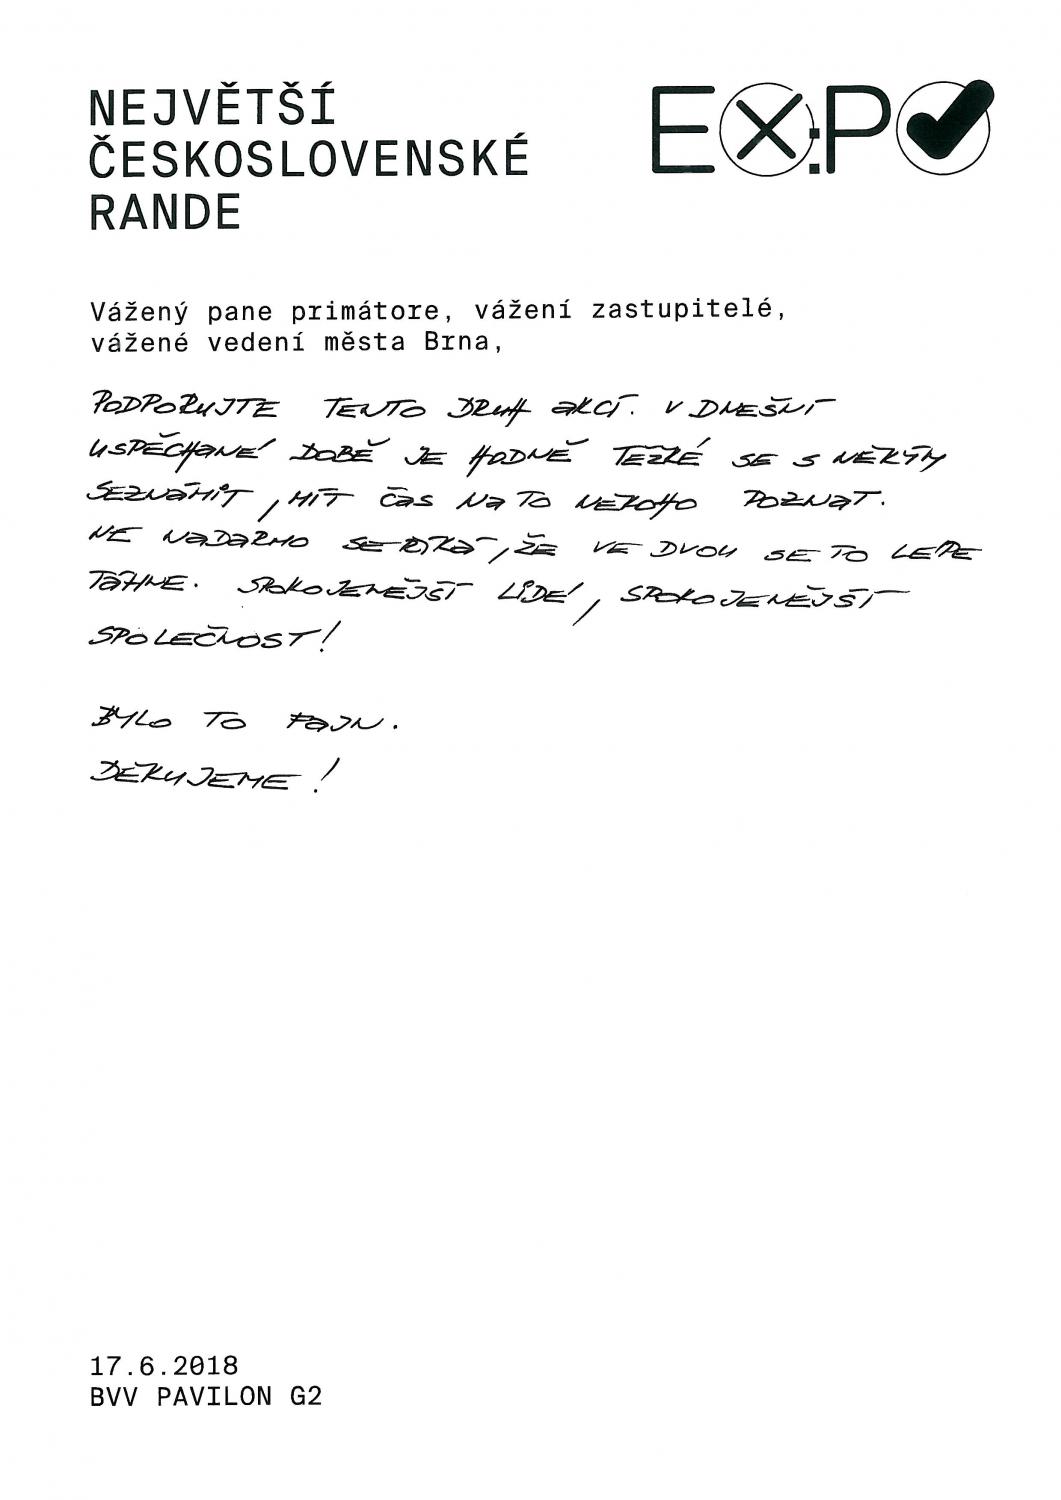 NEJVĚTŠÍ
ČESKOSLOVENSKÉ
RANDE
EX:PO
Vážený pane primátore, vážení zastupitelé,
vážené vedení města Brna,
PODPORUJTE TENTO DRUH AKCÍ. V DNEŠNÍ
USPĚCHANÉ DOBĚ JE HODNĚ TEŽKÉ SE S NĚKÝM
SEZNÁMIT, MÍT ČAS NA TO NĚKOHO POZNAT.
NE NADARMO SE ŘÍKÁ, ŽE VE DVOU SE TO LÉPE
TÁHNE. SPOKOJENĚJŠÍ LIDÉ, SPOKOJENĚJŠÍ
SPOLEČNOST!
BYLO TO FAJN.
DĚKUJEME!
17.6.2018
BVV PAVILON G2